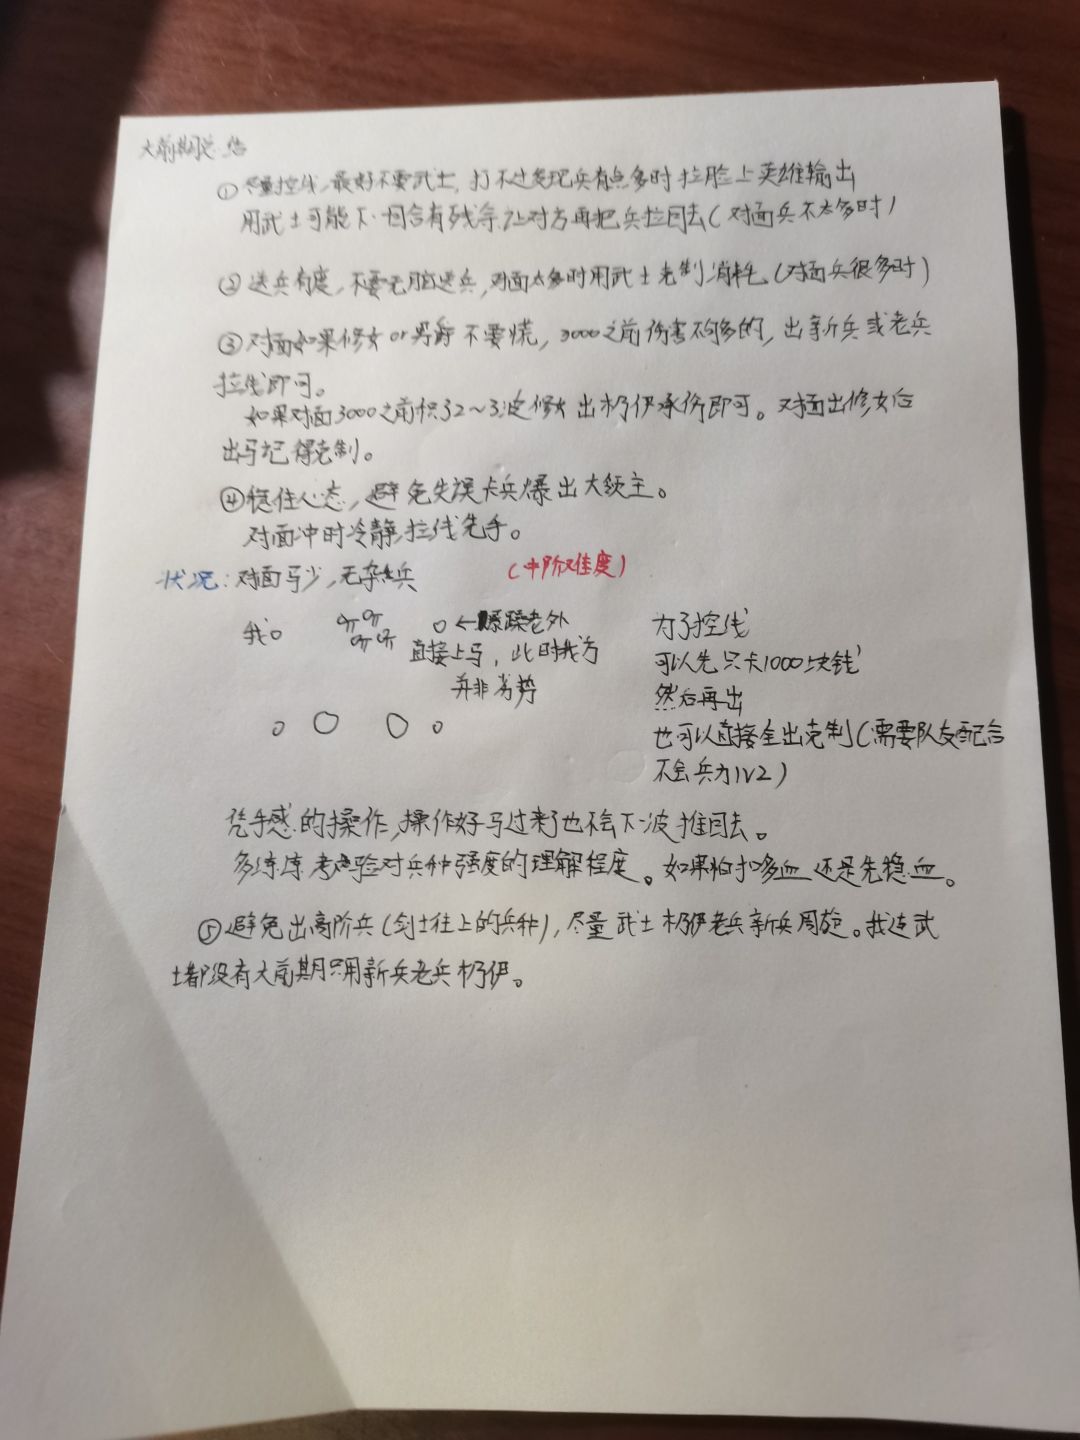 大前期总结
①尽量控线,最好不要武士,打不过发现兵有点多时拉脸上英雄输出
用武士可能下一回合有残余让对方再把兵拉回去(对面兵不太多时)
②送兵有度,不要无脑送兵,对面太多时用武士克制消耗(对面兵很多时)
③对面如果修女or男爵不要慌,3000之前伤害不够多的,出新兵或老兵
拉线即可。
如果对面3000之前积了2~3波修女出扔伊承伤即可。对面出修女后
出马记得克制。
④稳住心态,避免失误卡兵爆出大领主。
对面冲时冷静拉线先手。
状况:对面马少,无杂兵
(中阶难度)
我o
o←暴躁老外
直接上马,此时我方
并非劣势
为了控线
可以先只卡1000块钱
然后再出
也可以直接全出克制(需要队友配合
不会兵力1V2)
凭手感的操作,操作好马过来了也不会下一波推回去。
多练练考验对兵种强度的理解程度。如果怕扣多血还是先稳血。
⑤避免出高阶兵(剑士往上的兵种),尽量武士扔伊老兵新兵周旋。我连武
士都没有大前期只用新兵老兵扔伊。